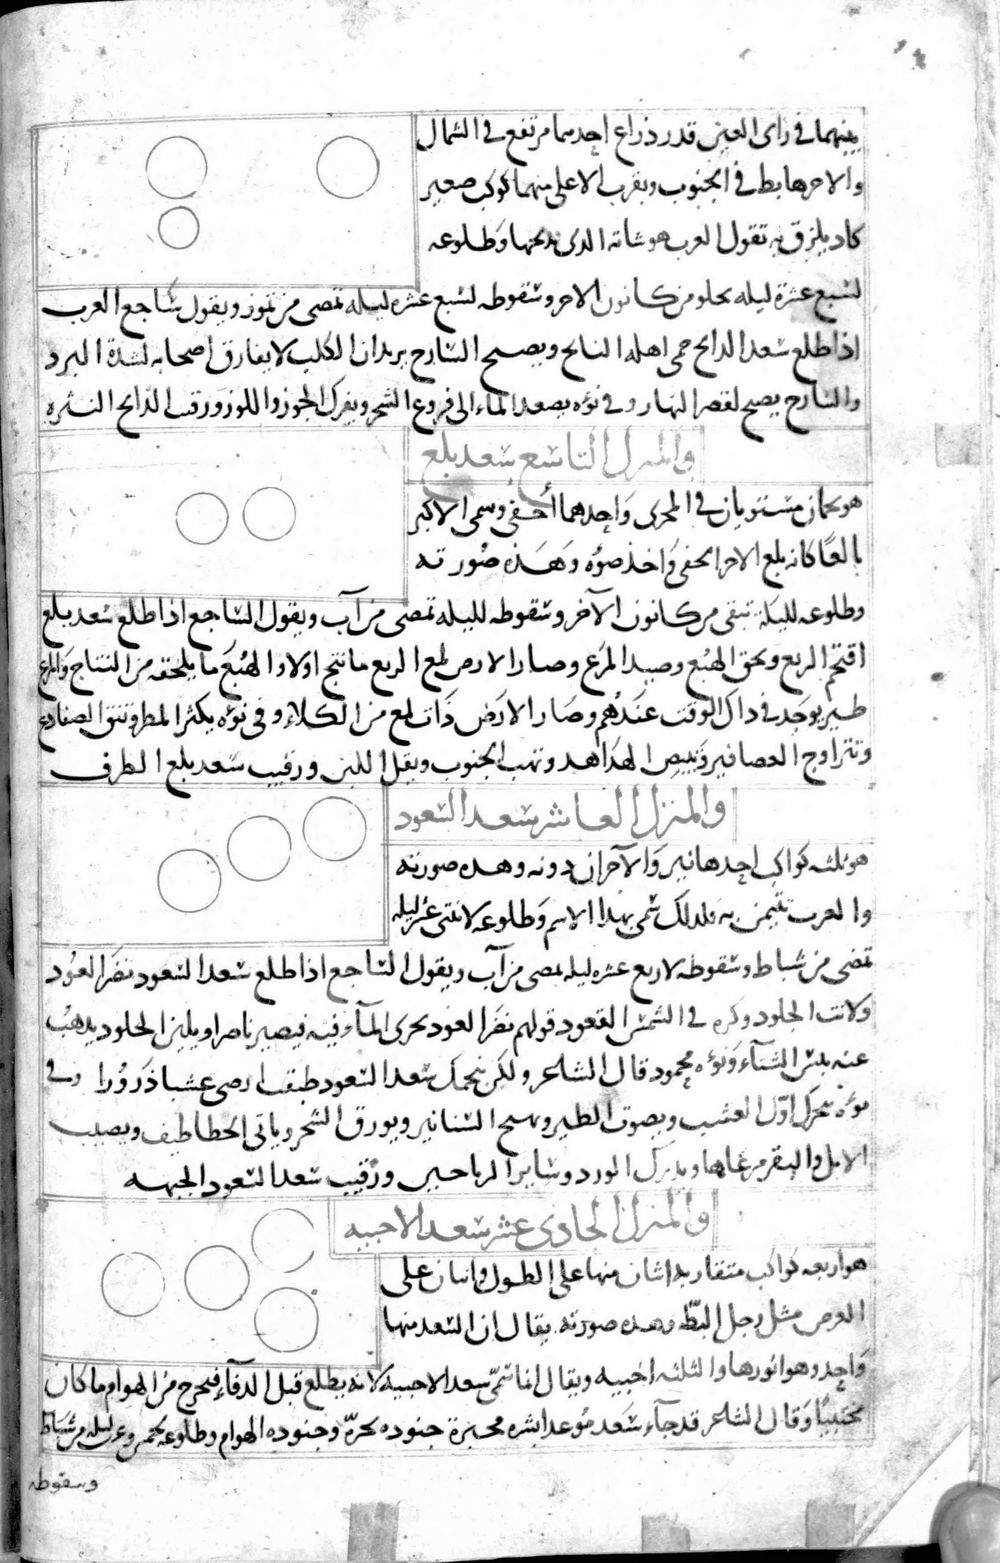 بينهما في راى العين قدر ذراع احدهما مرتفع في الشمال
والاخر هابط في الجنوب وبقرب الاعلى منهما كوكب صغير
كاد يلزق به تقول العرب هو شاته الذي يذبحها وطلوعه
لسبع عشرة ليله تخلو من كانون الاخر وسقوطه لسبع عشره ليله تمضى من تموز ويقول ساجع العرب
اذا طلع سعد الذابح حمى اهله النابح ويصبح السارح يريد ان الكلب لا يفارق اصحابه لشدة البرد
والسارح يصبح لقصر النهار وفي نوءه يصعد الماء الى فروع الشجر ويفرك الجوز واللوز ورقيب الذابح النثره
والمنزل التاسع سعد بلع
هو نجمان مستويان في المجرى واحدهما أخفى وسمى الاكبر
بالعًا كانه بلع الاخر الخفى واخذ ضوءه وهذه صورته
وطلوعه لليلة تبقى من كانون الآخر وسقوطه لليله تمضى من آب ويقول الساجع اذا طلع سعد بلع
اقتحم الربع ولحق الهبع وصيد المرع وصار الارض لمع الربع ما نتج اولا والهبع ما يلحقه من النتاج والمرع
طير يوجد في ذاك الوقت عندهم وصار الارض ذات لمع من الكلاء وفي نوءه يكثر المطر وتنق الضفادع
وتتزاوج العصافير وتبيض الهداهد وتهب الجنوب ويقل اللبن ورقيب سعد بلع الطرف
والمنزل العاشر سعد السعود
هو ثلثه كواكب احدها نير والآخران دونه وهذه صورته
والعرب تتيمن به فلذلك سمي بهذا الاسم وطلوعه لاثنتى عشر ليله
تمضى من شباط وسقوطه لاربع عشره ليله تمضى من آب ويقول الساجع اذا طلع سعد السعود نضر العود
ولانت الجلود وكره في الشمس القعود قولهم نضر العود يجرى المآء فيه فيصير ناضرا ويلين الجلود يذهب
عنه يبس الشتآء ونوءه محمود قال الشاعر ولكن بنجمك سعد السعود طبقت ارضى عشبا ذرورا وفي
نوءه يتحرك اول العشب ويصوت الطير وتهيج السنانير ويورق الشجر وياتى الخطاطيف ويصيب
الابل والبقر مرعاها ويدرك الورد وساير الرياحين ورقيب سعد السعود الجبهه
والمنزل الحادى عشر سعد الاخبيه
هو اربعه كواكب متقاربه اثنان منها على الطول واثنان على
العرض مثل رجل البطّه وهذه صورته يقال ان السعد منها
واحد وهو انورها والثلثه اخبيه ويقال انما سمّى سعد الاخبيه لانه يطلع قبل الدفآء فيخرج من الهوام ما كان
مختبيًا وقال الشاعر قد جآء سعد موعدا بشره مخبرة جنوده بحرّه وجنوده الهوام وطلوعه لخمس وعشرين ليله من شباط
وسقوطه